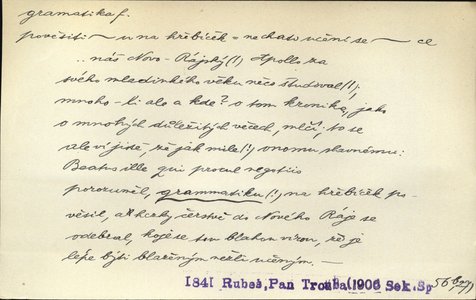 gramatika f.
pověsiti ~ u na hřebíček = nechati učení se — ce
.. náš Novo-Rájský (!) Apollo za
svého mladinkého věku něco študoval (!);
mnoho-li ale a kde? o tom kronika, jako
o mnohých důležitých věcech, mlčí; to se
ale ví jistě, že jak mile (!) onomu slavnému:
Beatus ille qui procul negotiis
porozuměl, grammatiku (!) na hřebíček po-
věsil, a hezky čerstvě do Nového Ráje se
odebral, koje se tou blahou vírou, že je
lépe býti blaženým nežli učeným. —
1841 Rubeš, Pan Trouba (1906 Sek. Sp